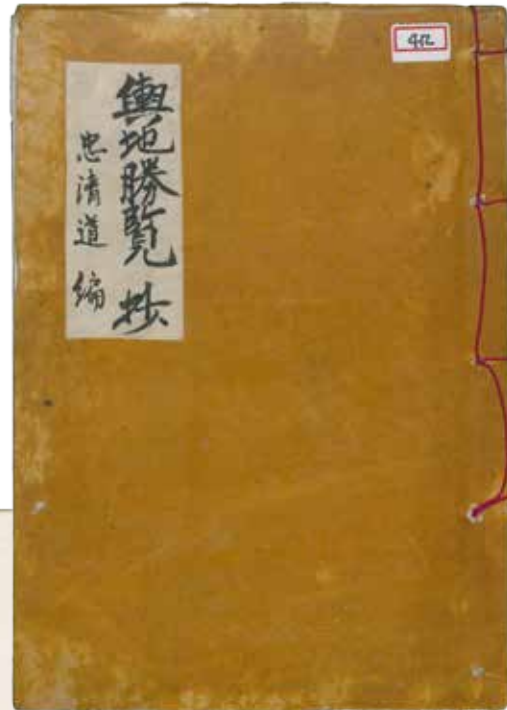 輿地勝覧 抄
忠清道 編